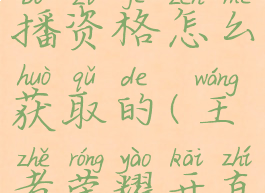 bō zī gé zěn me
播资格怎么
huò qǔ de wáng
获取的(王
zhě róng yào kāi zhí
者荣耀开直